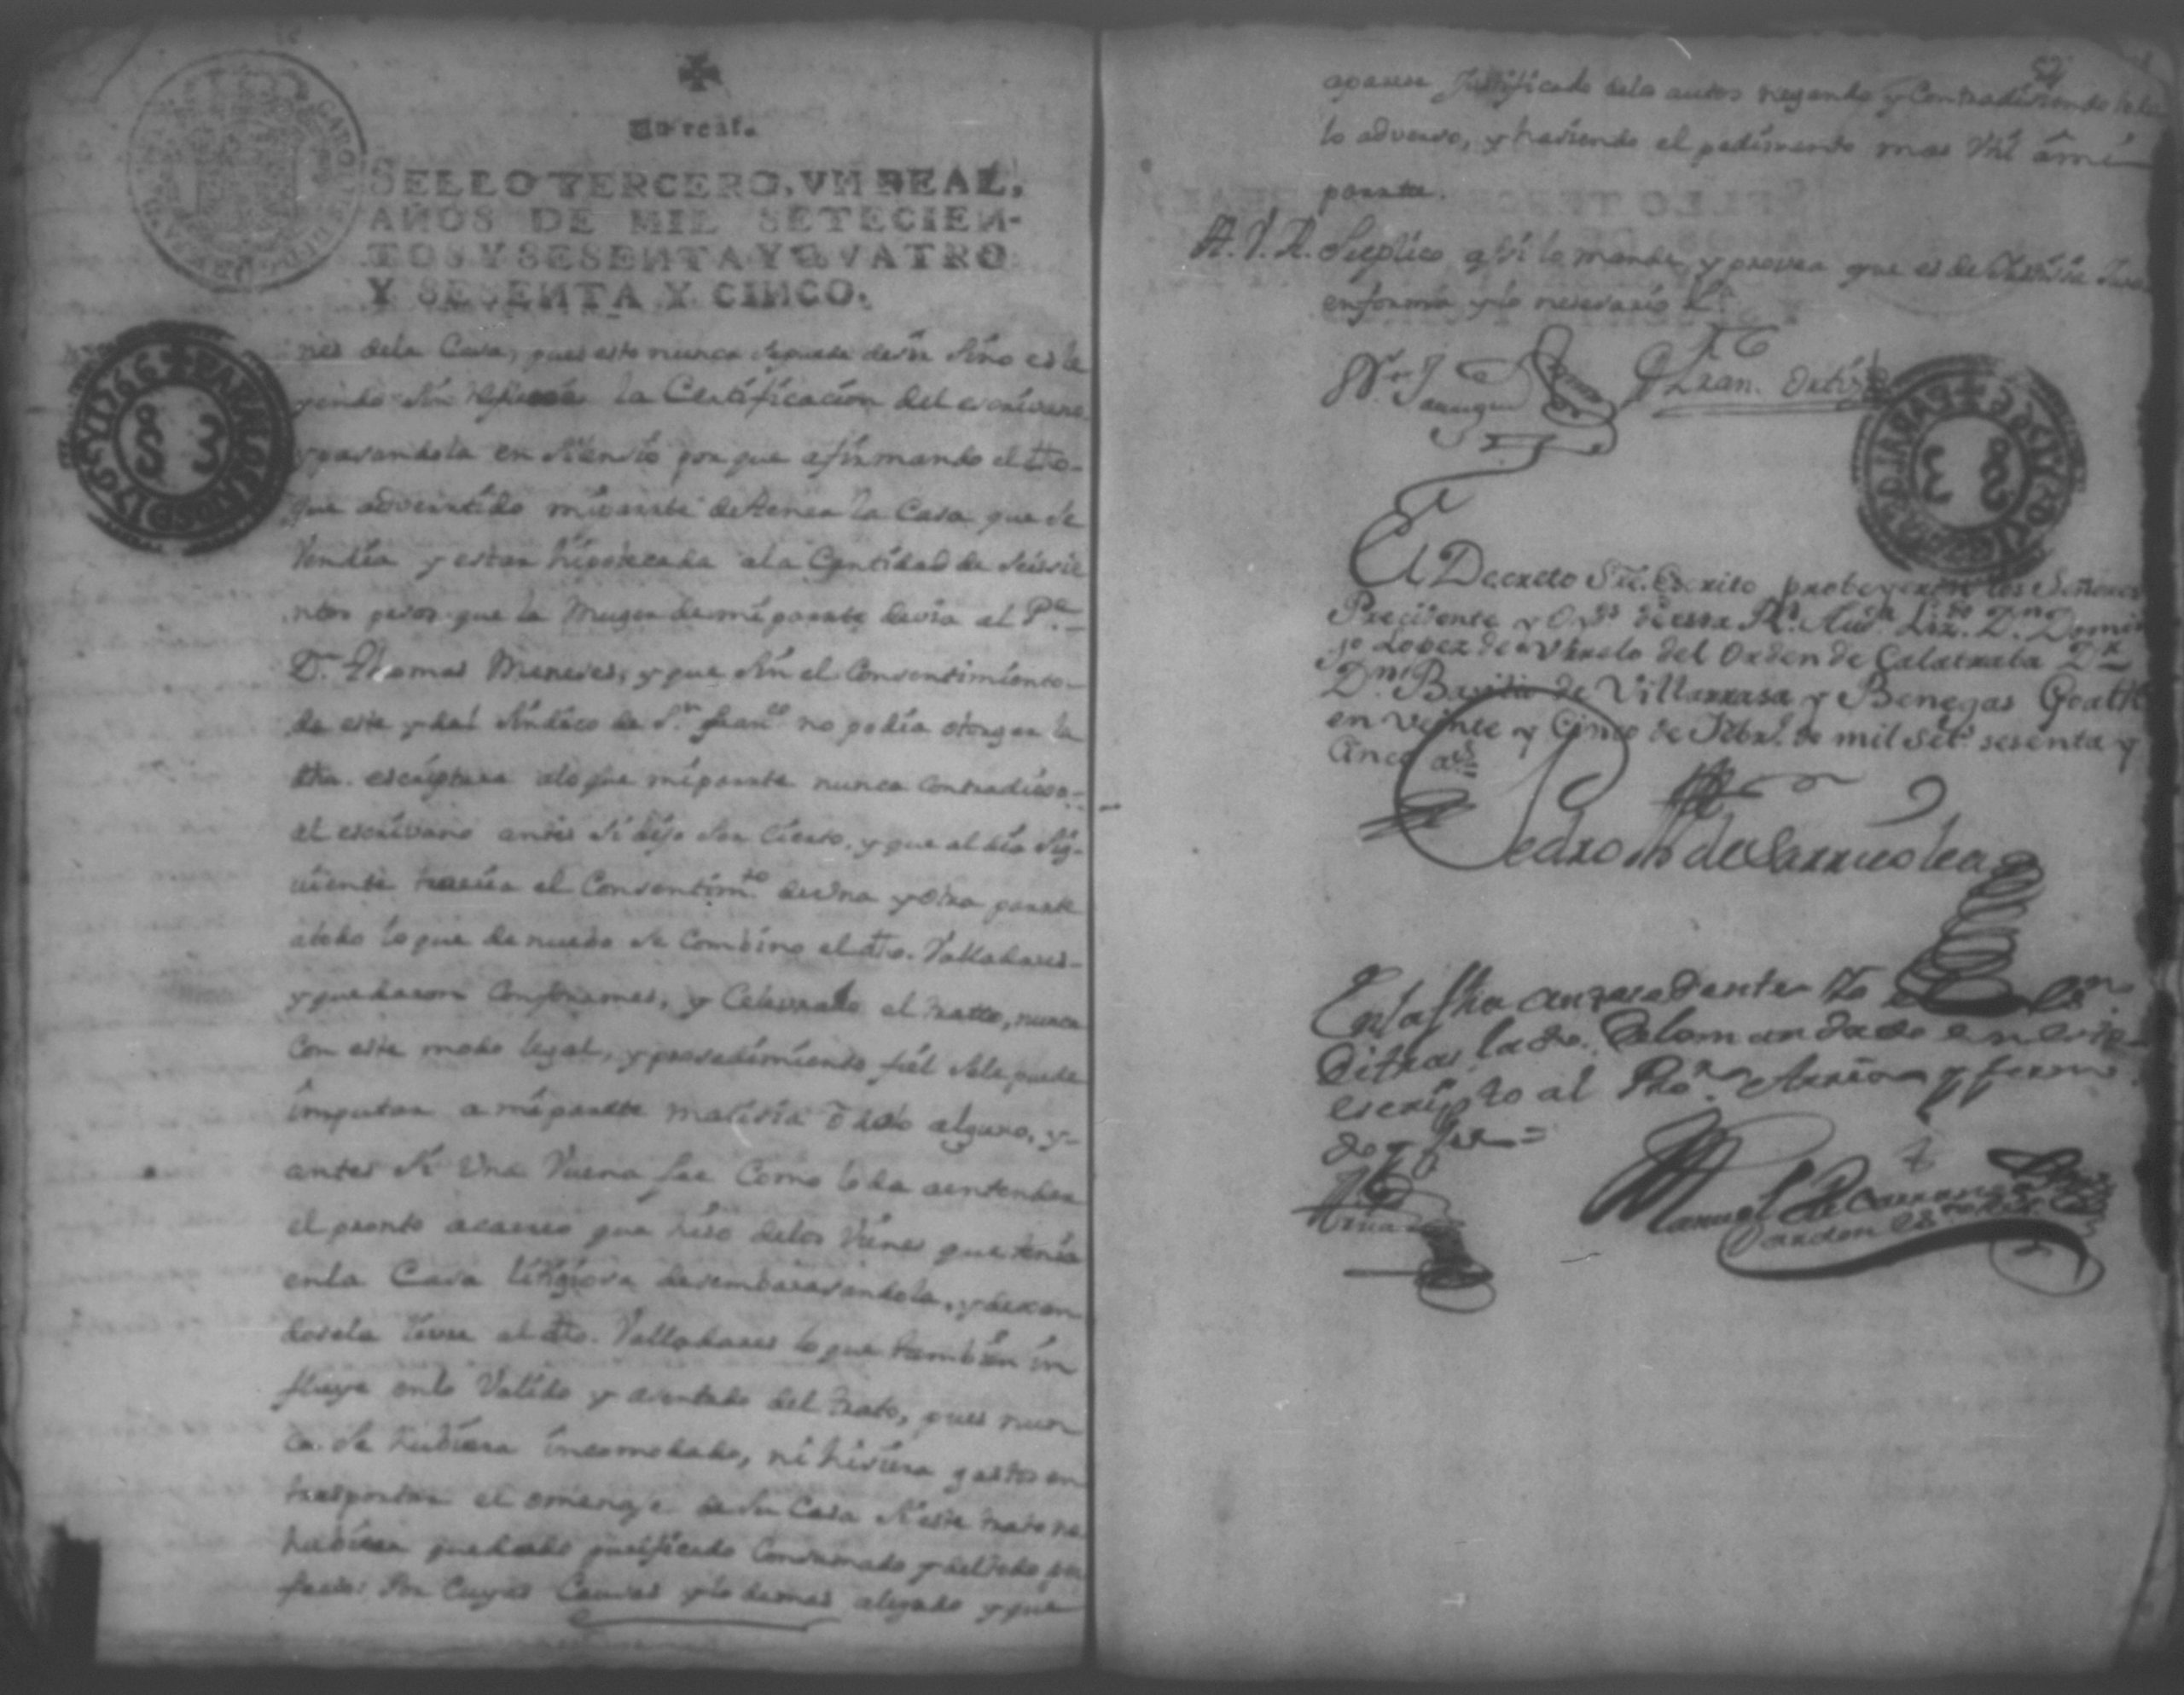 Un real.
SELLO TERCERO, VN REAL,
AÑOS DE MIL SETECIEN-
TOS Y SESENTA Y QVATRO
Y SESENTA Y CINCO.
nes dela Casa, pues esto nunca sepuede desir sino es le
yendo sin la Certificacion del escrivano,
y pasandola en silensio por que afirmando el dho
que advertido miparte detener la Casa que se
Vendia y estar hipotecada ala Cantidad de seissie
ntos pesos que la Muger demi parte devia al Pe.
D. Thomas Meneses, y que sin el Consentimiento
de este y del sindico de Sn. Franco no podia otorgar la
dha. escriptura alo que miparte nunca contradixo
al escrivano antes si dijo ser cierto, y que al dia sig-
uiente traeria el Consentimto. de una y otra parte
atodo lo que de nuevo se combino el dho. Valladares
y quedaron Conformes, y Celebrado el tratto, nunca
Con este modo legal, y prosedimiento fiel sele puede
imputar a miparte malisia o dolo alguno, y
antes si Una Vuena fee Como lo da aentender
el pronto acarreo que hiso delos Vienes que tenia
enla Casa litigiosa desembarasandola, y dexan
dosela livre al dho. Valladares lo que tambien in
fluye enlo Valido y asentado del trato, pues nun
ca se hubiera incomodado, ni hisiera gastos en
trasportar el omenaje de su Casa si este trato no
hubiera quedado Consumado y
Por Cuyas Causas y lo demas alegado y que
52
aparese Justificado delos autos negando y Contradisiendo
lo adverso, y hasiendo el pedimento mas Util ami
parte.
A. V. A. Suplico q si lo mande y provea que es de Justisia
enforma y lo nesesario &a.
Fran. Ortiz
El Decreto Sre. Escrito probeyeron los Señores
Precidente y Oyds de esta Rl. Auda. Liz. Dn. Domin
go Lopez de Vrrelo del Orden de Calatraba Dr.
Dn. Basilio de Villarrasa y Benegas Goathe
en veinte y Cinco de Febr. de mil Sets. sesenta y
Cinco as.
Pedro de Larrueolea
En la fha antesedente Yo
Citras lado. Delo mandado en
escripto al Pror. Arriera y firmo
doy fee =
Manuel de Carranza